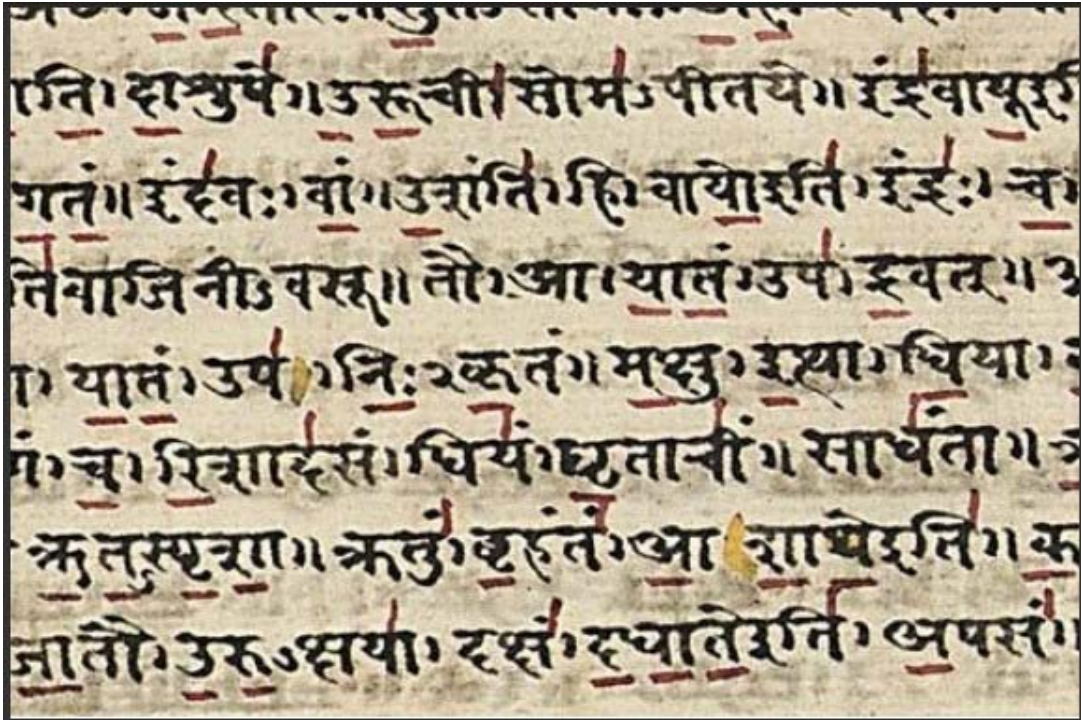 गाति॒। दा॒शुषे॑॥ उ॒रू॒ची। सोम॑ऽपीतये॥ इंद्र॑वायू॒इति
गतं॒॥ इंद॑वः। वां॒॥ उ॒शंति॑। हि। वायो॒इति॑। इंद्रः॑। च॒।
ति॑वाजिनीऽवसू॥ तौ। आ। या॒तं॒। उप॑। द्र॒वत्॥
या॒तं॒। उप॑। निः॒ऽकृ॒तं॥ म॒क्षु। इ॒त्था। धि॒या।
णं। च॒। रि॒शाद॑सं। धियं॑। घृ॒ताचीं॑॥ साधं॑ता॥
ऋ॒त॒स्पृ॒शा॒॥ क्रतुं॑। बृ॒हंतं॑। आ॒शा॒थे॒इति॑॥ क॒
जा॒तौ। उ॒रु॒ऽक्षया॑। दक्षं॑। द॒धा॒ते॒इति॑। अ॒पसं॑॥